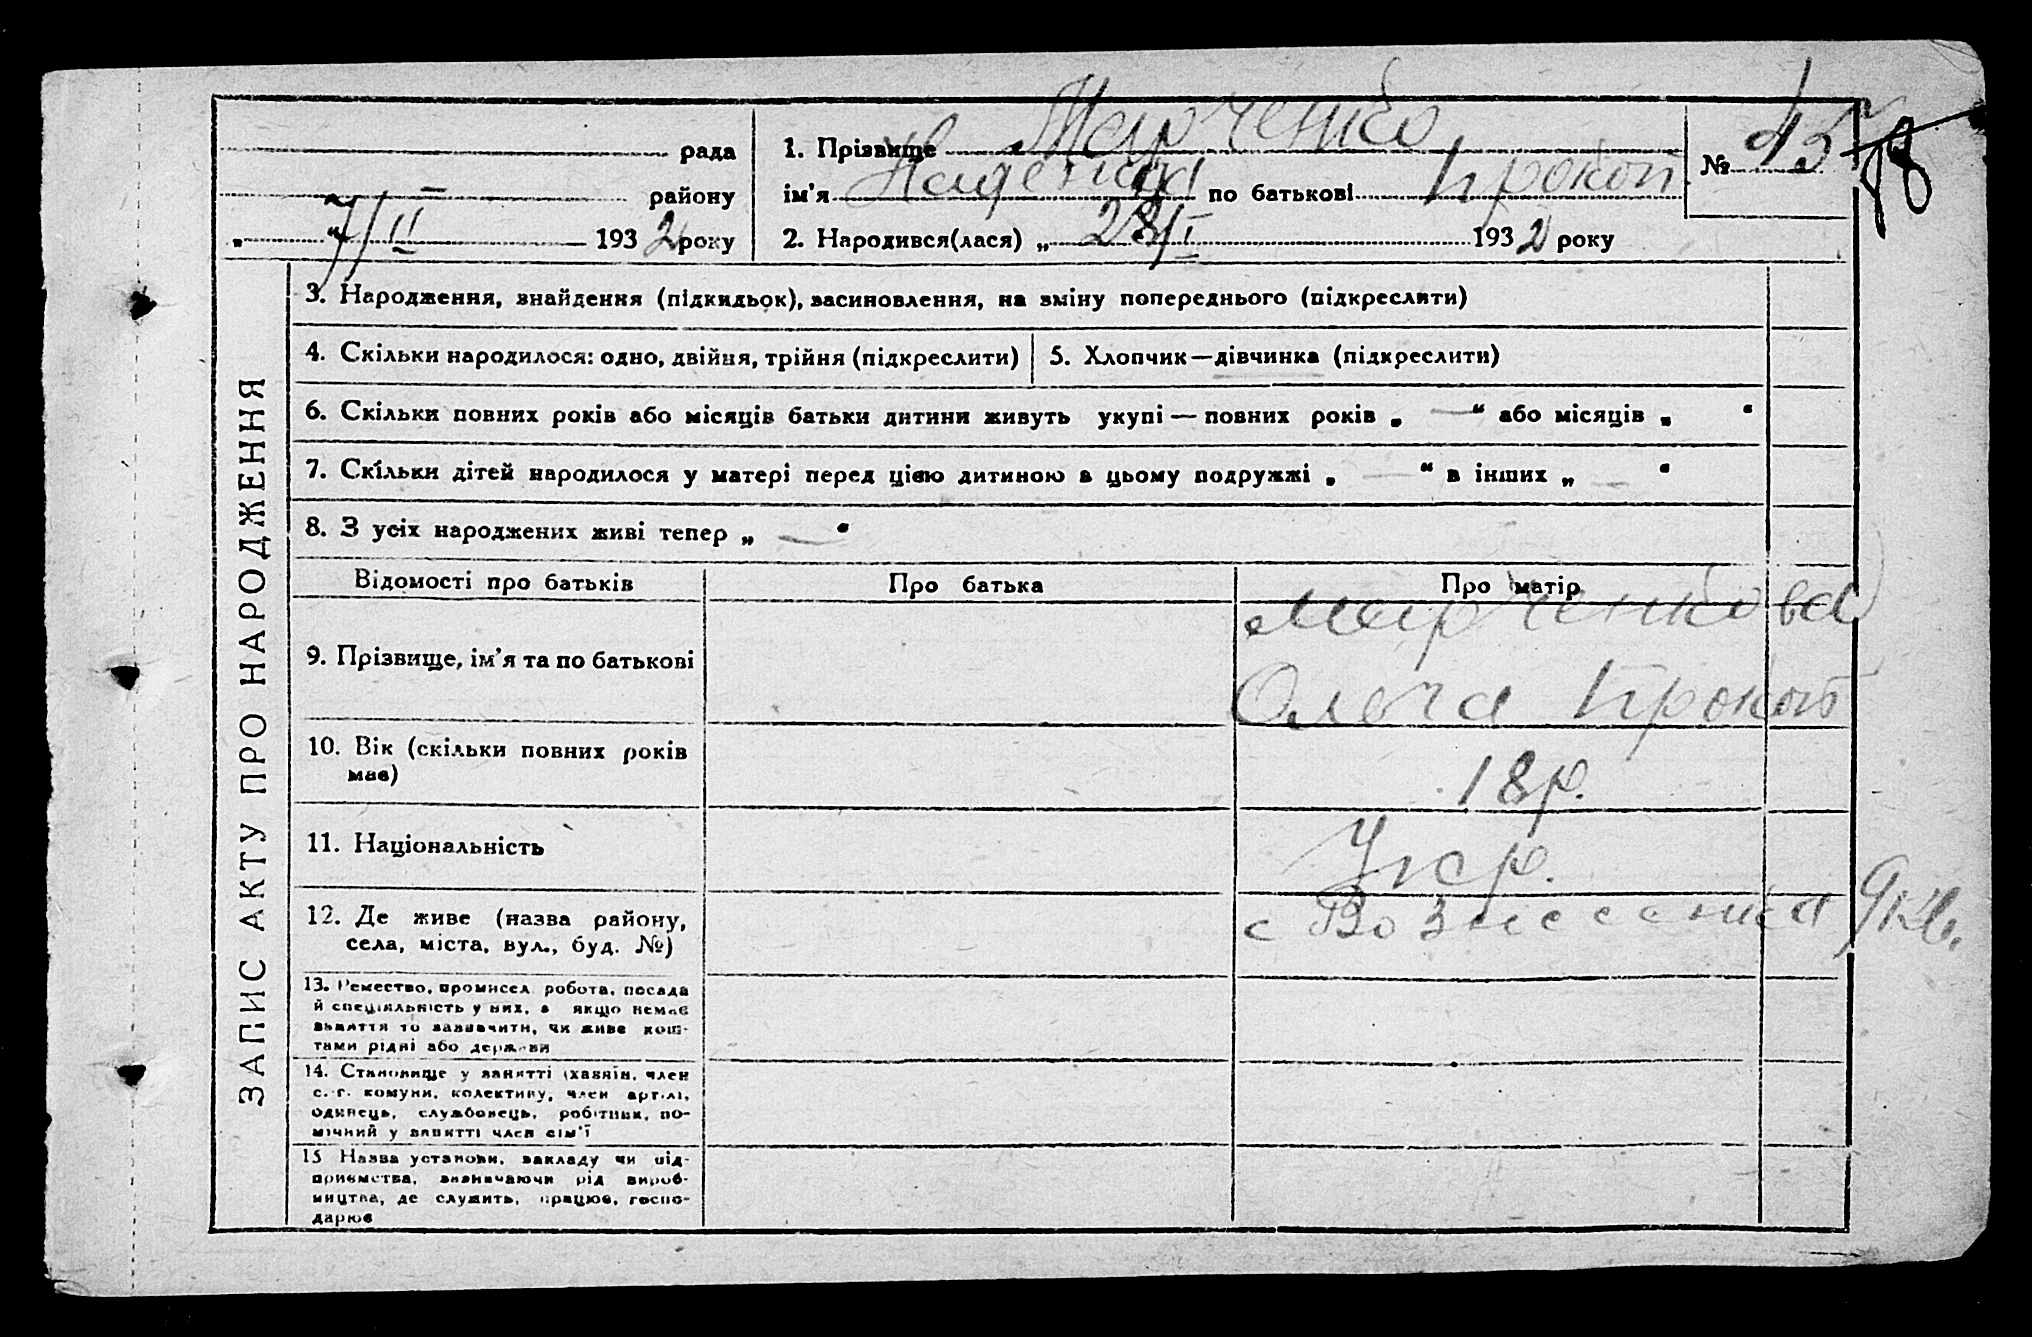 рада
району
„ 7/II “ 1932 року
1. Прізвище Марченко
ім'я Надежда по батькові Прокоп
2. Народився(лася) „ 28/I 1932 року
№ 45
18
ЗАПИС АКТУ ПРО НАРОДЖЕННЯ
3. Народження, знайдення (підкидьок), засиновлення, на зміну попереднього (підкреслити)
4. Скільки народилося: одно, двійня, трійня (підкреслити)
5. Хлопчик—дівчинка (підкреслити)
6. Скільки повних років або місяців батьки дитини живуть укупі — повних років „ — “ або місяців „ “
7. Скільки дітей народилося у матері перед цією дитиною в цьому подружжі „ — “ в інших „ — “
8. З усіх народжених живі тепер „ — “
Відомості про батьків
Про батька
Про матір
9. Прізвище, ім'я та по батькові
Марченкова
Ольга Прокоп
10. Вік (скільки повних років
має)
18 р.
11. Національність
Укр.
12. Де живе (назва району,
села, міста, вул., буд. №)
с Вознесенка 9 кв.
13. Ремество, промисел, робота, посада
й спеціяльність у них, а якщо немає
заняття то зазначити, чи живе кош-
тами рідні або держави
14. Становище у занятті (хазяїн, член
с.-г. комуни, колективу, член артілі,
одинець, службовець, робітник, по-
мічний у занятті член сім'ї
15 Назва установи, закладу чи під-
приємства, зазначаючи рід вироб-
ництва, де служить, працює, госпо-
дарює